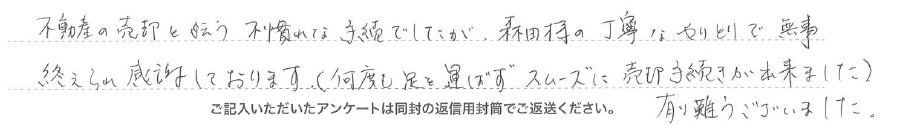 不動産の売却と伝う不慣れな手続でしたが、森田様の丁寧なやりとりで無事
終えられ感謝しております。(何度も足を運ばずスムーズに売却手続きが出来ました)
ご記入いただいたアンケートは同封の返信用封筒でご返送ください。
有り難うございました。